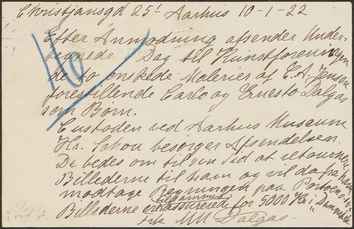 Christjansgd 25¹ Aarhus 10-1-22
Efter Anmodning afsender Under-
tegnede Dag til Kunstforeningen
de to ønskede Malerier af C. A. Jensen
forestillende Carlo og Ernesto Dalgas
som Børn.
Custoden ved Aarhus Museum
Hr. Schou besørger Afsendelsen.
De bedes om til sin Tid at retournere
Billederne til ham og vil da
modtage Regningen paa
Billederne for 5000 Kr.
Dalgas
10